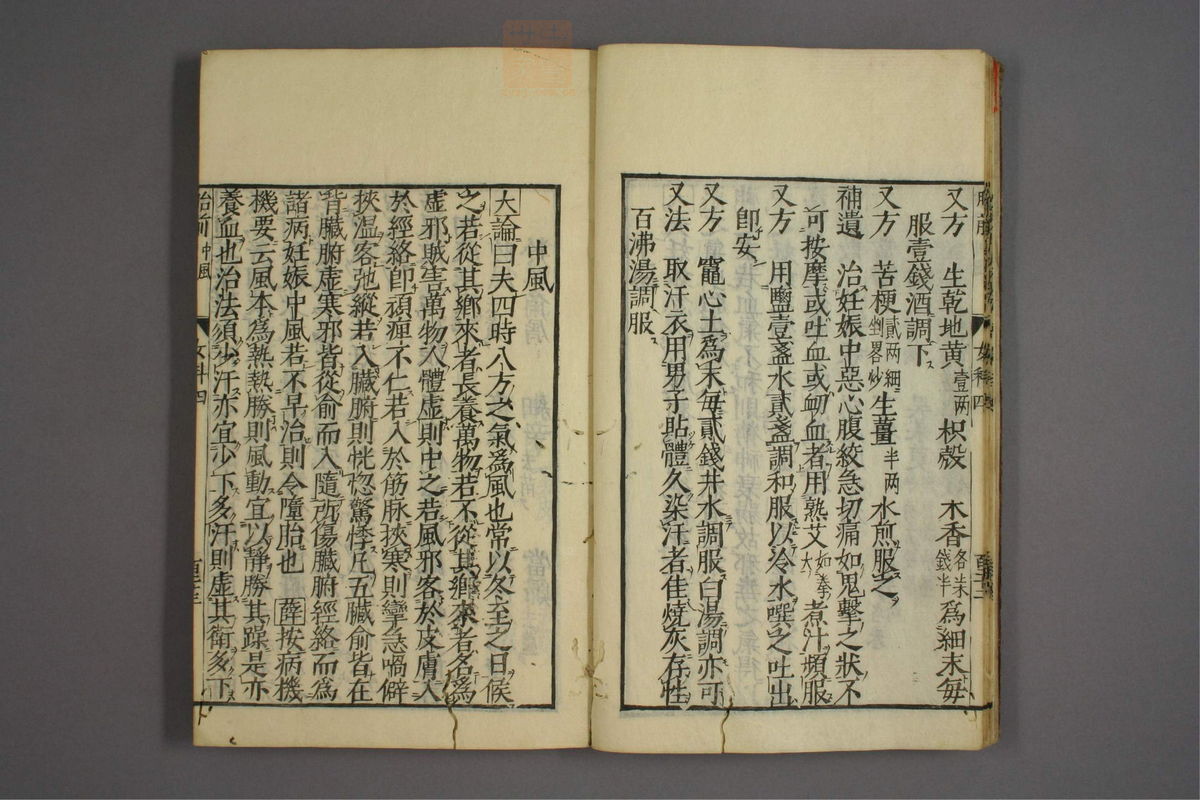 又方　生乾地黃壹两　枳殼　木香各半錢半為細末每
服壹錢酒調下
又方　苦梗貳两細剉畧炒生薑半两　水煎服之
補遺　治妊娠中惡心腹絞急切痛如鬼擊之狀不
可按摩或吐血或衂血者用熟艾如拳大煮汁頻服
又方　用鹽壹盞水貳盞調和服以冷水噀之吐出
即安
又方　竈心土為末每貳錢井水調服白湯調亦可
又法　取汗衣用男子貼體久染汗者佳燒灰存性
百沸湯調服
中風
大論曰夫四時八方之氣為風也常以冬至之日候
之若從其鄉來者長養萬物若不從其鄉來者名為
虛邪賊害萬物人體虛則中之若風邪客於皮膚入
於經絡即頑痺不仁若入於筋脉挾寒則攣急喎僻
挾温客弛縱若入臟腑則恍惚驚悸凡五臟俞皆在
背臟腑虛寒邪皆從俞而入隨所傷臟腑經絡而為
諸病妊娠中風若不早治則令墮胎也　薛按病機
機要云風本為熱熱勝則風動宜以靜勝其躁是亦
養血也治法須少汗亦宜少下多汗則虛其衛多下
胎前中風　女科四